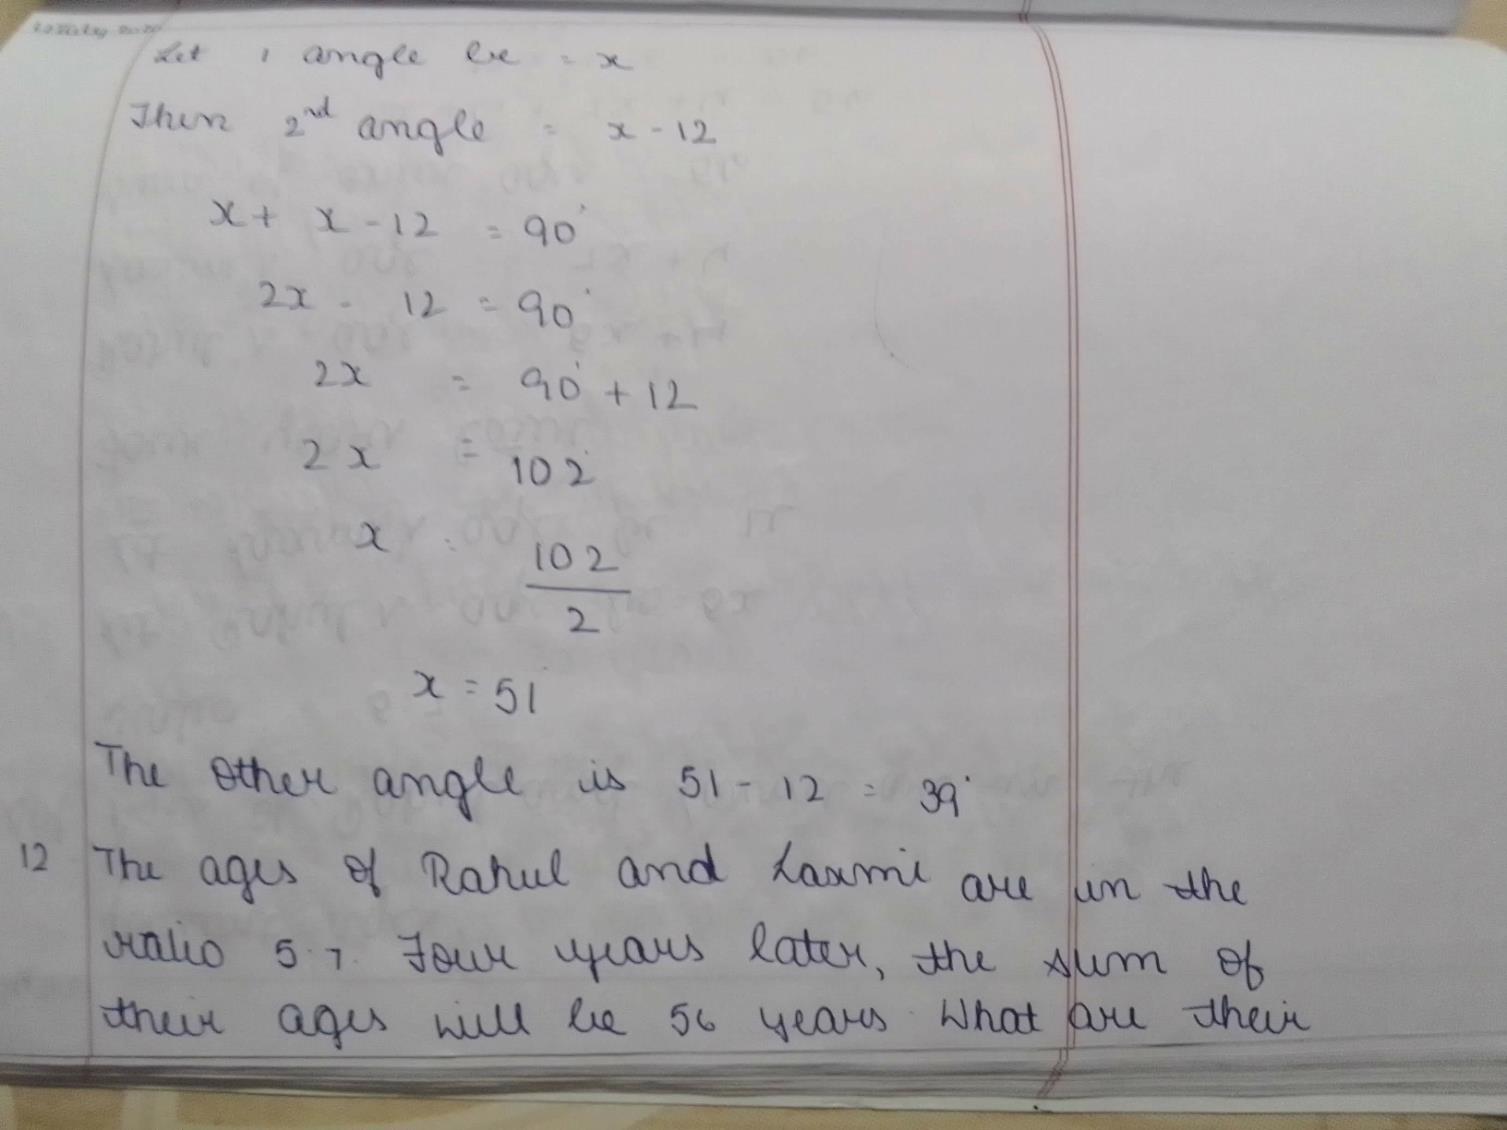 Let 1 angle be = x
Then 2nd angle = x - 12
x + x - 12 = 90°
2x - 12 = 90°
2x = 90° + 12
2x = 102°
x = 102/2
x = 51°
The other angle is 51 - 12 = 39°
12 The ages of Rahul and Laxmi are in the
ratio 5:7. Four years later, the sum of
their ages will be 56 years. What are their